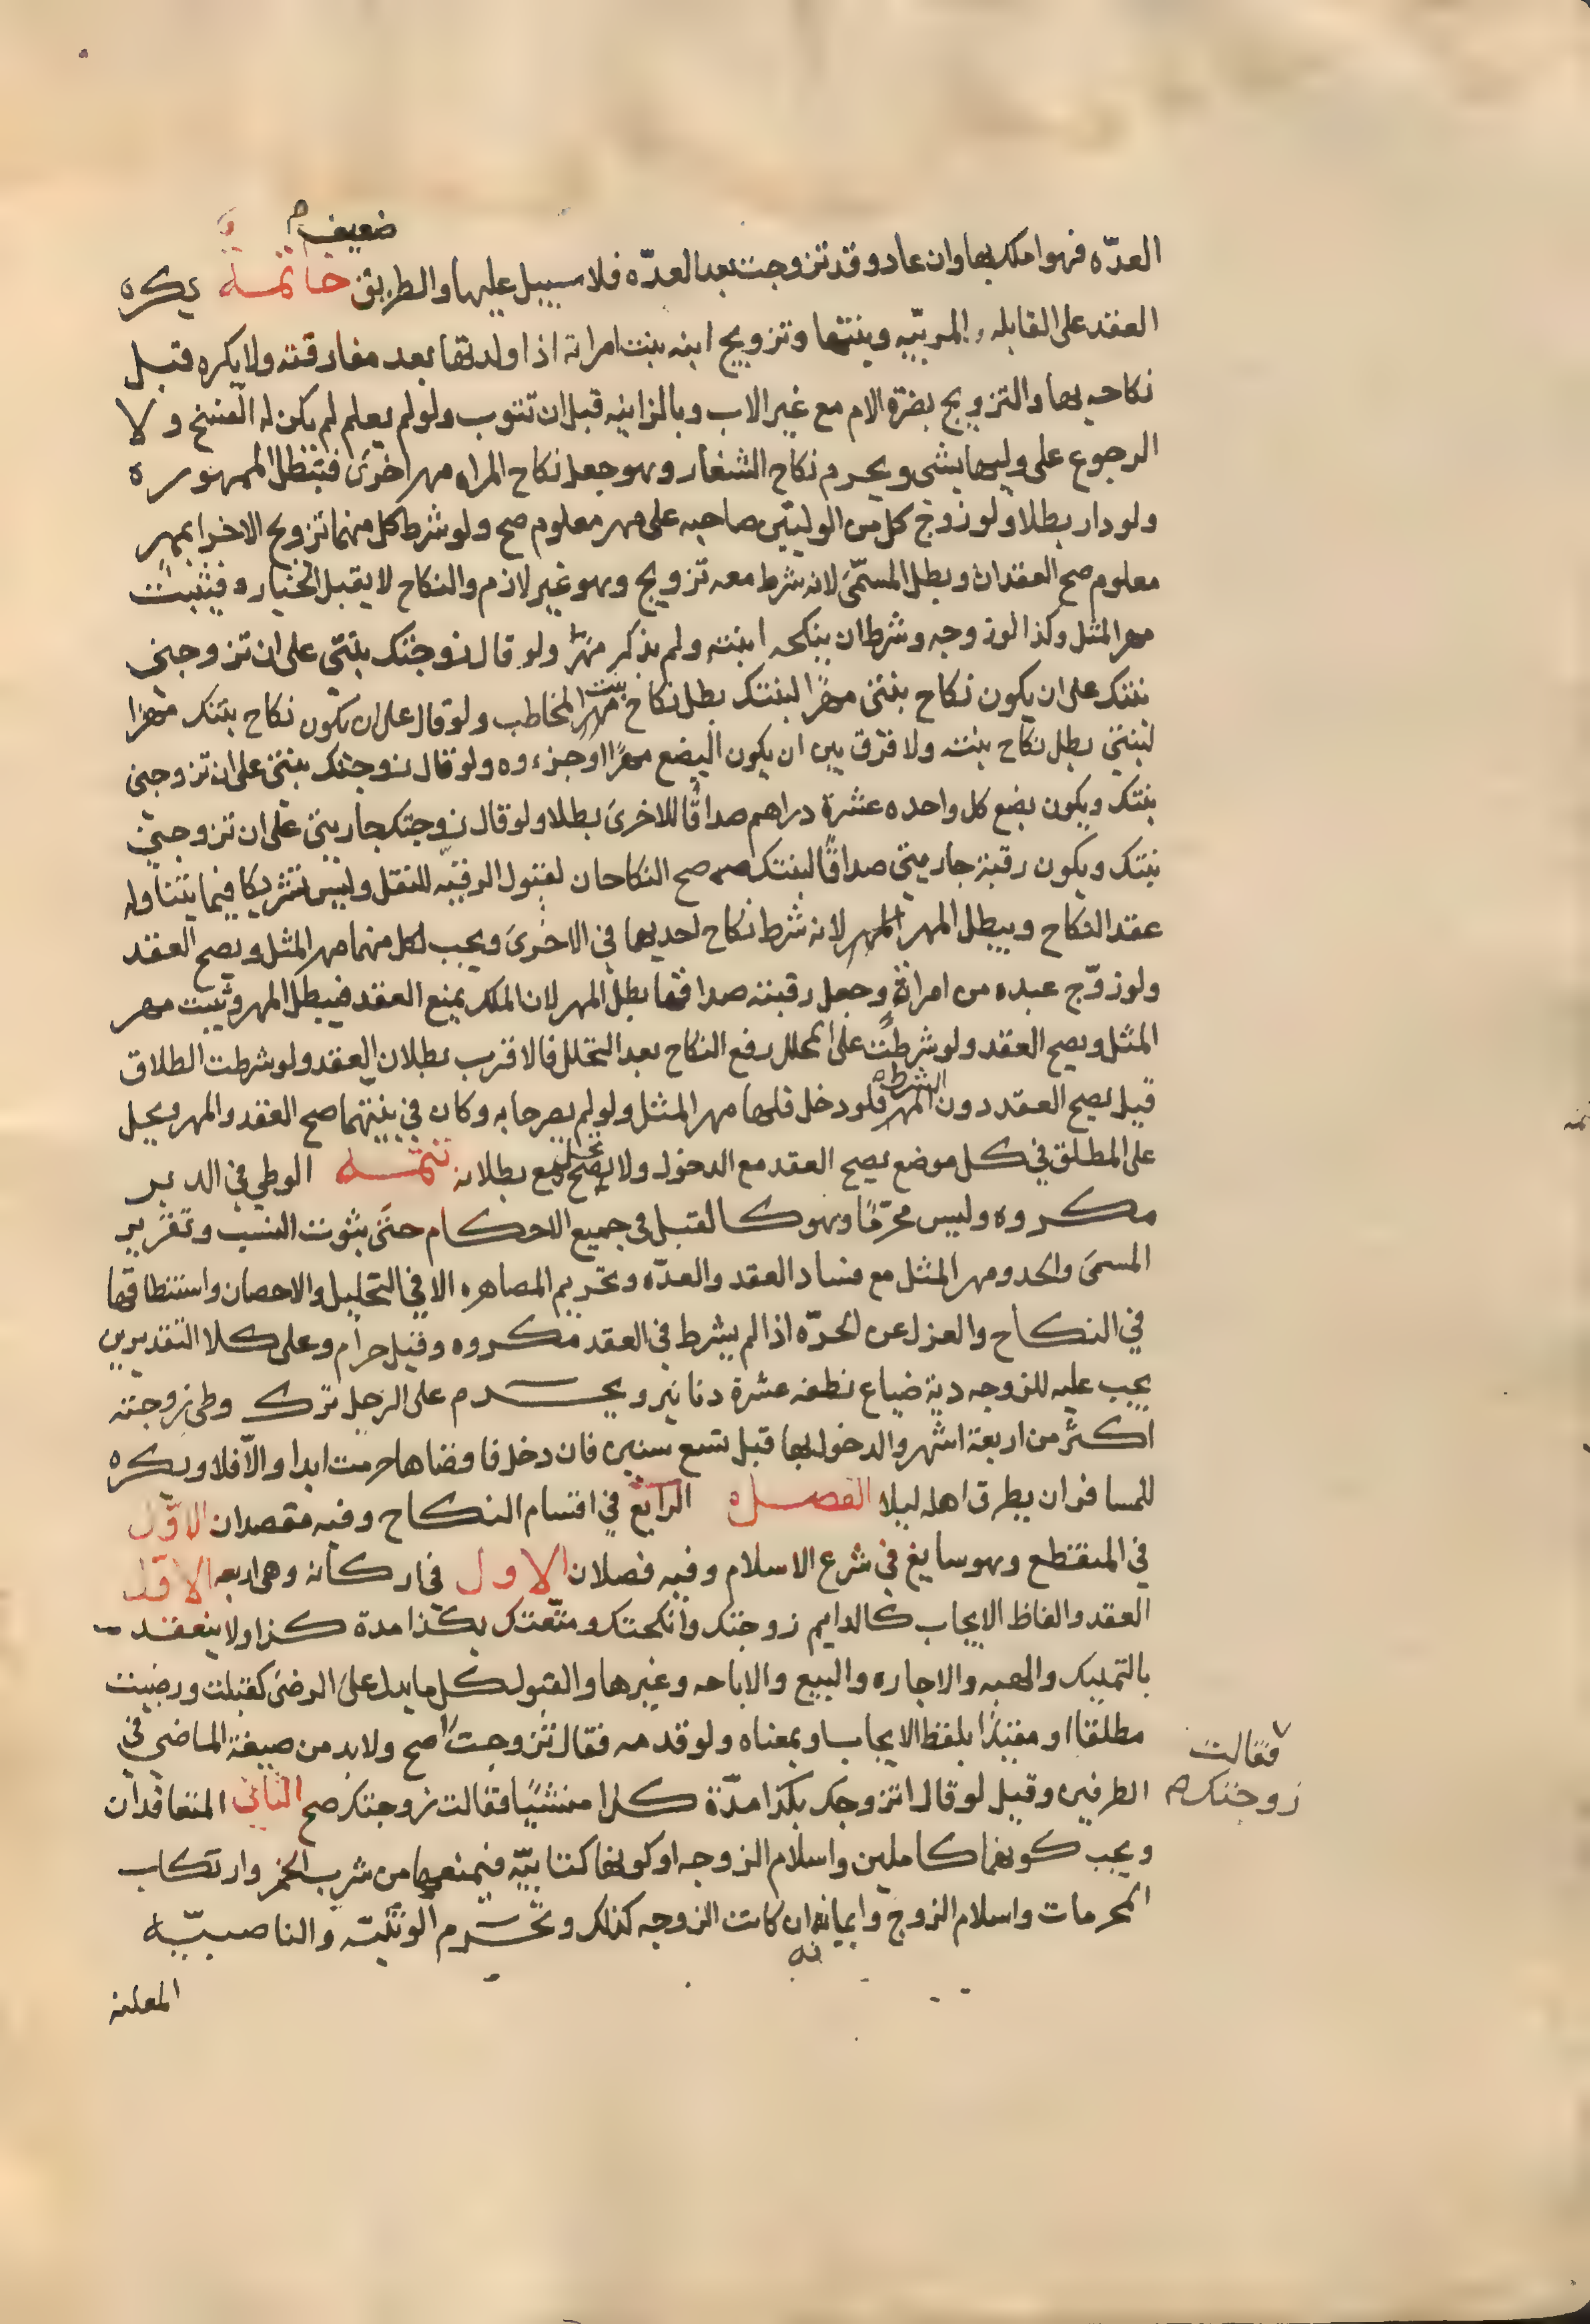 ضعيف م
العدّه فهو املك بها وان عاد وقد تزوجت بعد العدّه فلا سبيل عليها والطريق خاتمة و يكره
العقد على القابله و المربّيه وبنتها وتزويج ابنه بنت امراته اذا ولدتها بعد مفارقته ولا يكره قبل
نكاحه بها والتزويج بضرّة الام مع غير الاب وبالزانيه قبل ان تتوب ولو لم يعلم لم يكن له الفسخ ولا
الرجوع على وليها بشى ويحرم نكاح الشغار وهو جعل نكاح المراه مهر اخرى فتبطل الممهوره
ولو دار بطلا ولو زوّج كل من الوليّين صاحبه على مهر معلوم صح ولو شرط كل منهما تزويج الاخرا بمهر
معلوم صح العقدان وبطل المسمّى لانه شرط معه تزويج وهو غير لازم والنكاح لا يقبل الخيار ه فيثبت
مهر المثل وكذا لو زوجه وشرط ان ينكحه ابنته ولم يذكر مهرًا ولو قال زوجتك بنتي على ان تزوجني
بنتك على ان يكون نكاح بنتي مهرًا لبنتك بطل نكاح مهر بنت المخاطب ولو قال على ان يكون نكاح بنتك مهرًا
لبنتي بطل نكاح بنته ولا فرق بين ان يكون البضع مهرًا او جزءه ولو قال زوجتك بنتي على ان تزوجني
بنتك ويكون بضع كل واحده عشرة دراهم صداقًا للاخرى بطلا ولو قال زوجتك جاريتي على ان تزوجني
بنتك ويكون رقبة جاريتي صداقًا لبنتك صح صح النكاحان لقبول الرقبّه للنقل وليس تشريكا فيما يتناوله
عقد النكاح ويبطل المهر المهر لانه شرط نكاح احديهما في الاخرى ويجب لكل منهما مهر المثل ويصح العقد
ولو زوّج عبده من امراةٍ وجعل رقبته صداقها بطل المهر لان الملك يمنع العقد فيبطل المهر ويثبت مهر
المثل ويصح العقد ولو شرطت على المحلل رفع النكاح بعد التحلل فالاقرب بطلان العقد ولو شرطت الطلاق
قيل يصح العقد دون المهر الشرط ه فلو دخل فلها مهر المثل ولو لم يصرحا به وكان في نيّتهما صح العقد والمهر ويحل
على المطلق في كل موضع يصح العقد مع الدخول ولا يصح تحل مع بطلانه تتمّـة الوطي في الدبر
مكروه وليس محرّمًا وهو كالقبل في جميع الاحكام حتّى بثوت النسب وتقرير
المسمى والحد ومهر المثل مع فساد العقد والعدّه وتحريم المصاهره الا في التحليل والاحصان واستنطاقها
في النكاح والعزل عن الحرّه اذا لم يشرط في العقد مكروه وقيل حرام وعلى كلا التقديرين
يجب عليه للزوجه دية ضياع نطفه عشرة دنانير ويحرم على الرجل ترك وطى زوجته
اكثر من اربعة اشهر والدخول بها قبل تسع سنين فان دخل فافضاها حرمت ابدا والّا فلا ويكره
للمسافر ان يطرق اهله ليلا الفصل ه الرابع في اقسام النكاح وفيه مقصدان الاوّل
في المنقطع وهو سايغ في شرع الاسلام وفيه فصلان الاول في اركانه وهى اربعه الاوّل
العقد والفاظ الايجاب كالدايم زوجتك وانكحتك ومتّعتك بكذا مدة كذا ولا ينعقد
بالتمليك والهبه والاجاره والبيع والاباحه وغيرها والقبول كل ما يدل على الرضى كقبلت ورضيت
مطلقا او مقيدًا بلفظ الايجاب او بمعناه ولو قدمه فقال تزوجت صح ولا بد من صيغة الماضي في
فقالت
زوجتك م
الطرفين وقيل لو قال اتزوجك بكذا مدّة كذا منشئًا فقالت زوجتك صح الثانى المتعاقدان
ويجب كونهما كاملين واسلام الزوجه او كونها كتابيّه فيمنعها من شرب الخمر وارتكاب
المحرمات واسلام الزوج وايمانه ان كانت الزوجه كذلك وتحرم الوثنيّه والناصبيّه
نه
المعلنه